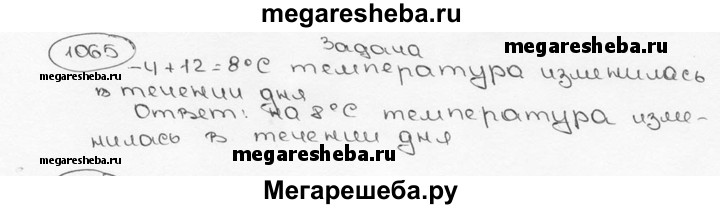 megaresheba.ru
1065
Задача
-4+12=8°С температура изменилась
megaresheba.ru
в течении дня
Ответ: на 8°С температура изме-
нилась в течении дня
megaresheba.ru
megaresheba.ru
Мегарешеба.ру